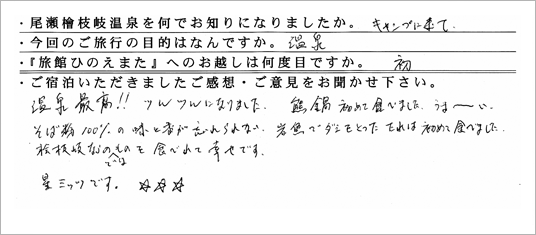 ・尾瀬檜枝岐温泉を何でお知りになりましたか。 キャンプに来て
・今回のご旅行の目的はなんですか。 温泉
・『旅館ひのえまた』へのお越しは何度目ですか。 初
・ご宿泊いただきましたご感想・ご意見をお聞かせ下さい。
温泉最高!! ツルツルになりました。 熊鍋初めて食べました。うま〜い。
そば粉100%の味と香が忘れられない。岩魚でダシをとったたれは初めて食べました。
桧枝岐ならではのものを食べれて幸せです。
星ミッツです。 ☆☆☆